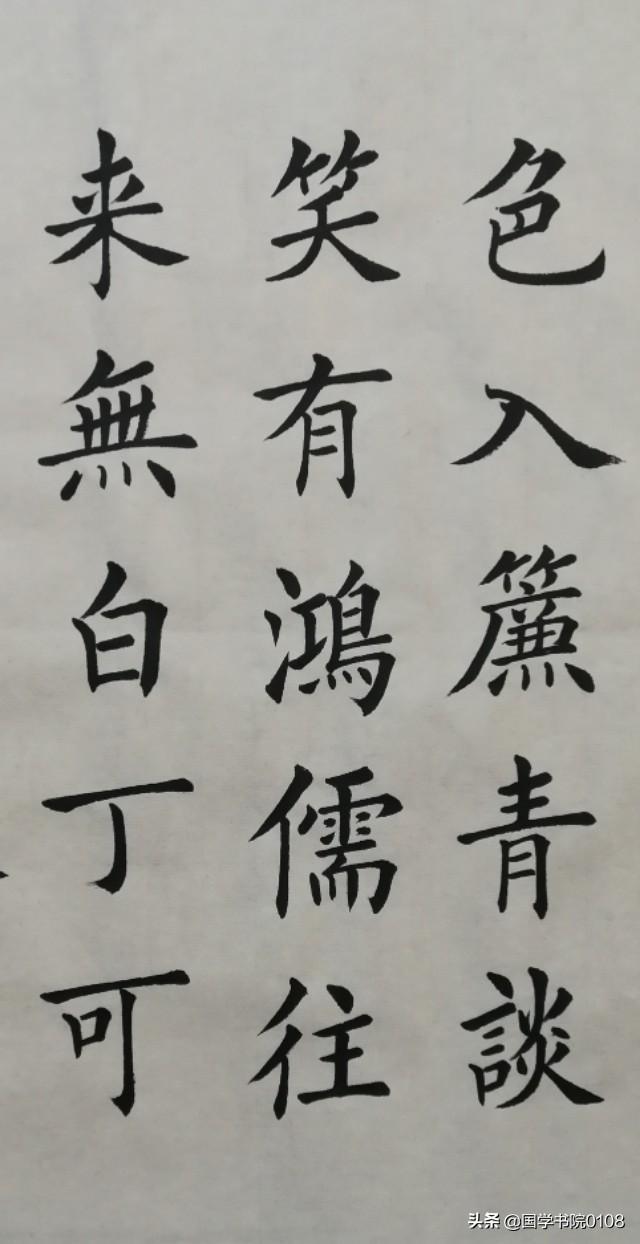 色入簾青談
笑有鴻儒往
来無白丁可
头条 @国学书院0108